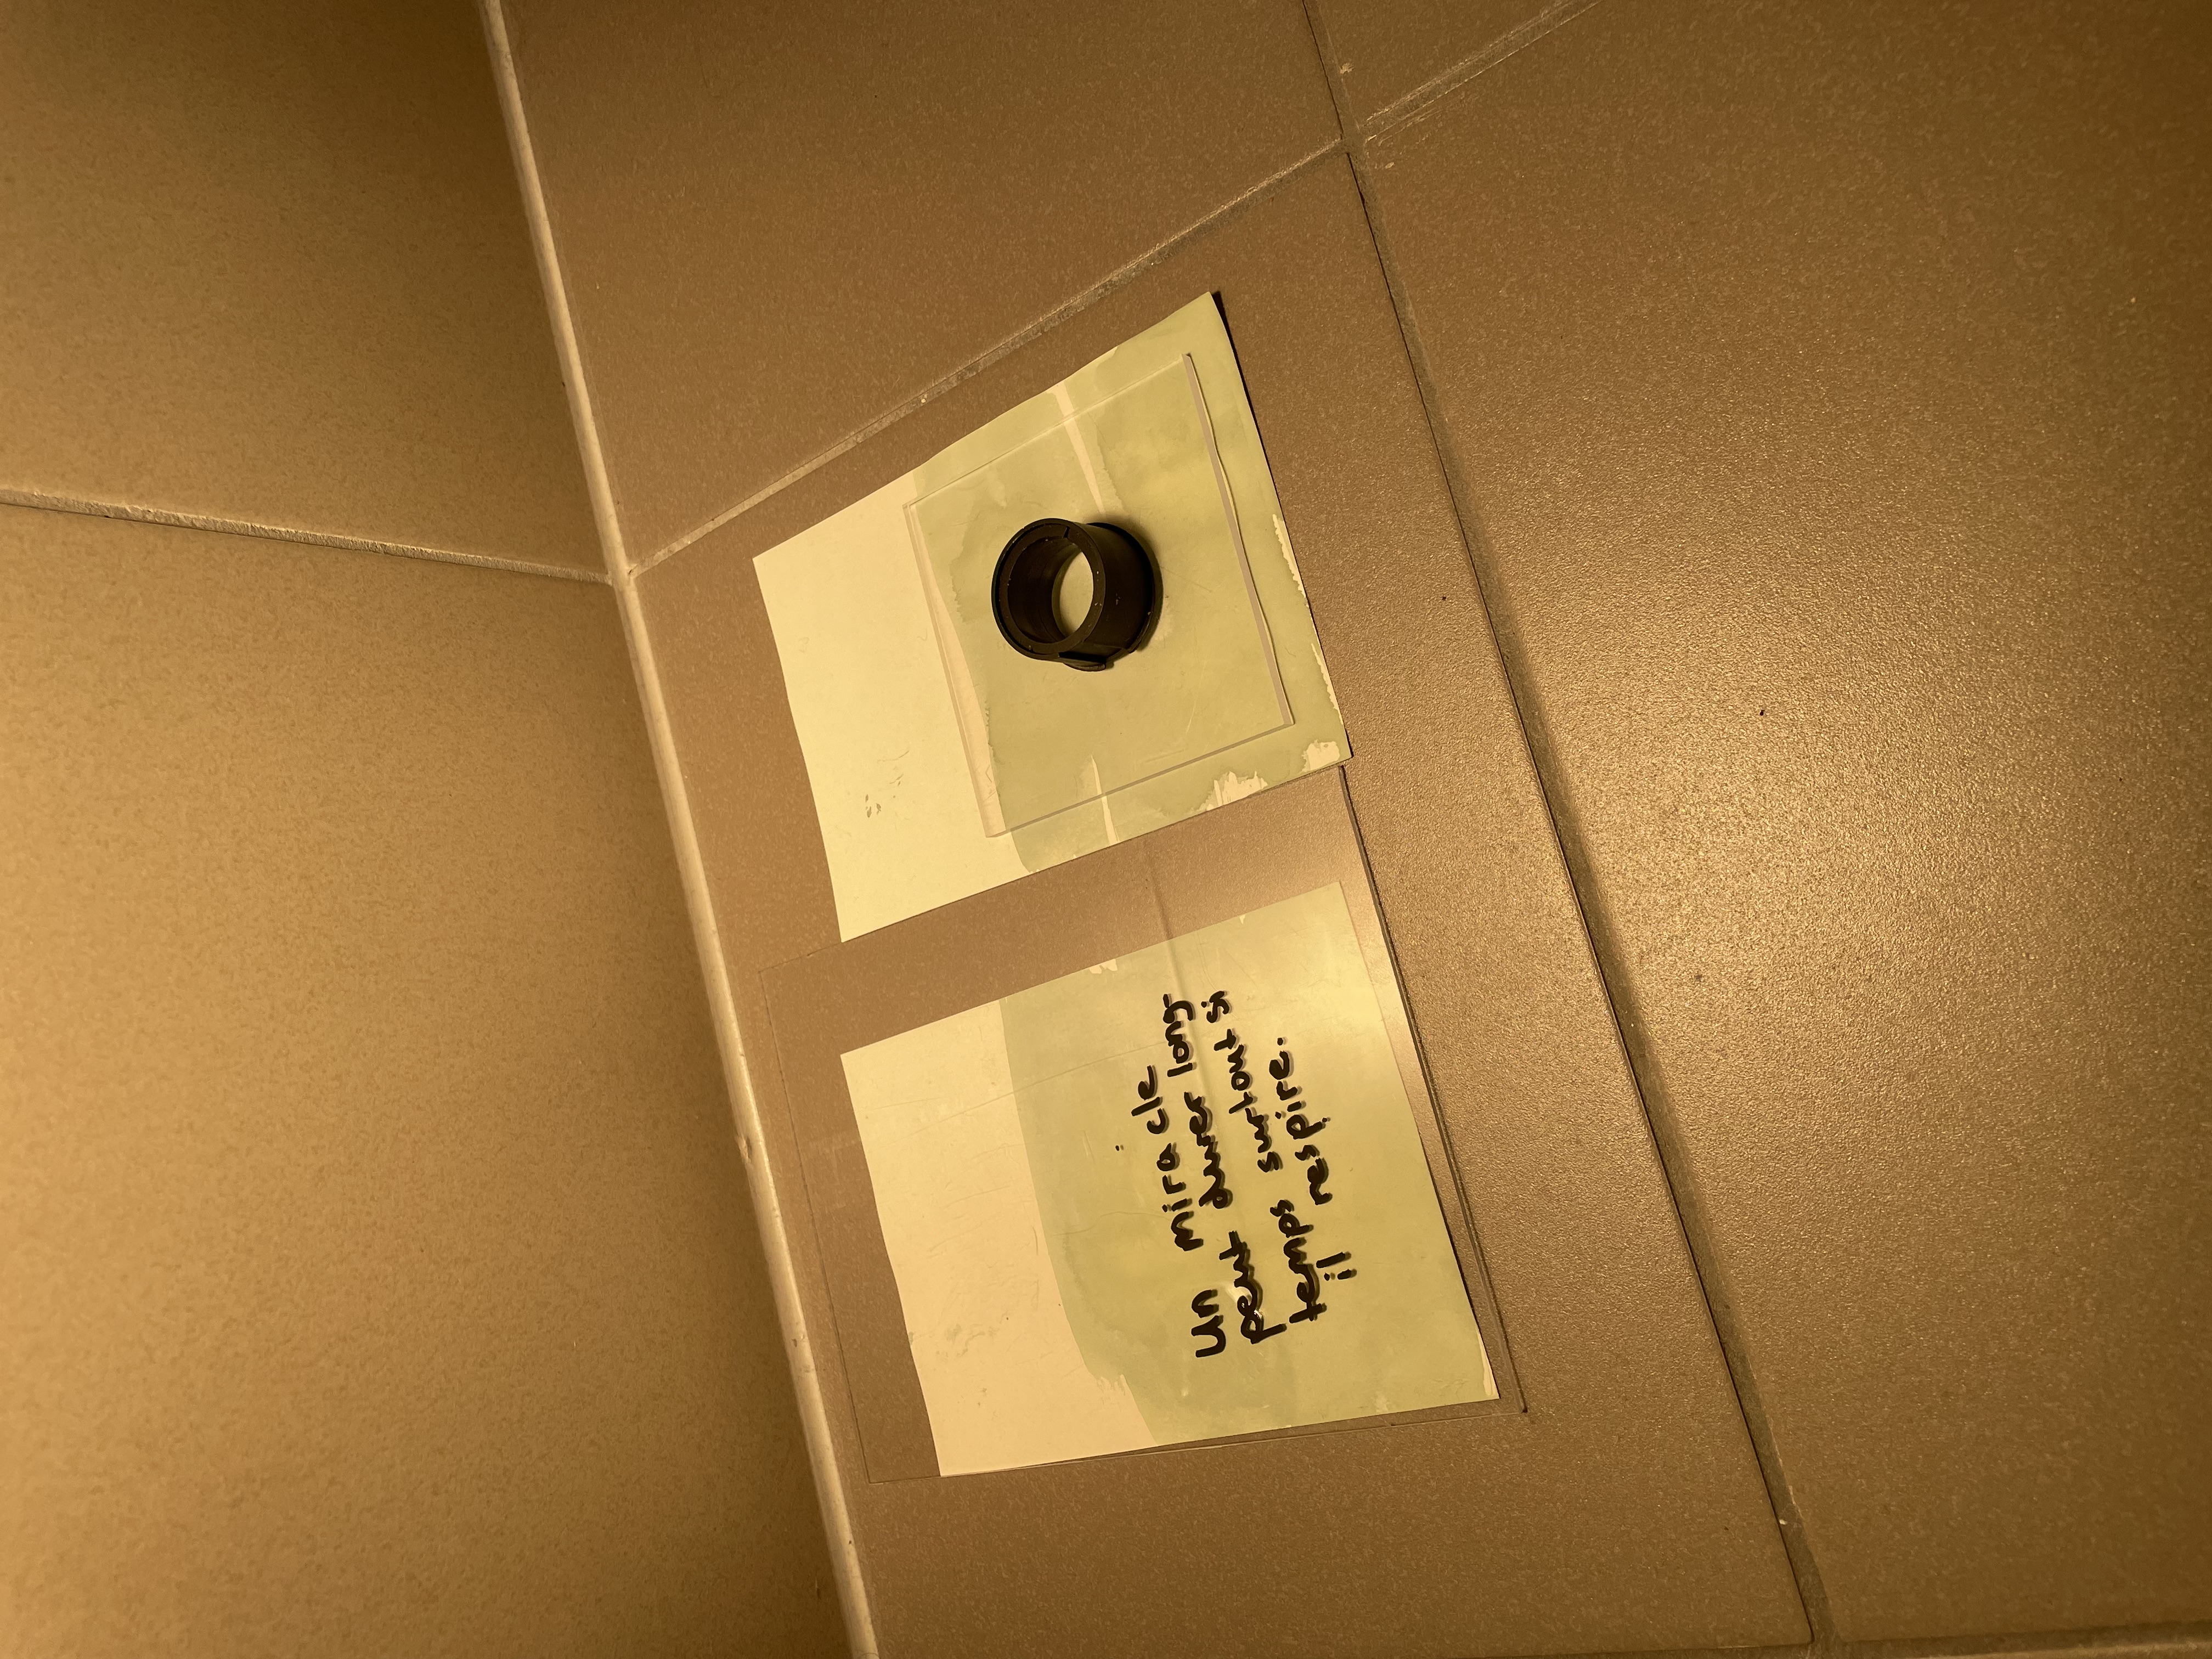 Un miracle
peut durer long-
temps surtout si
il respire.